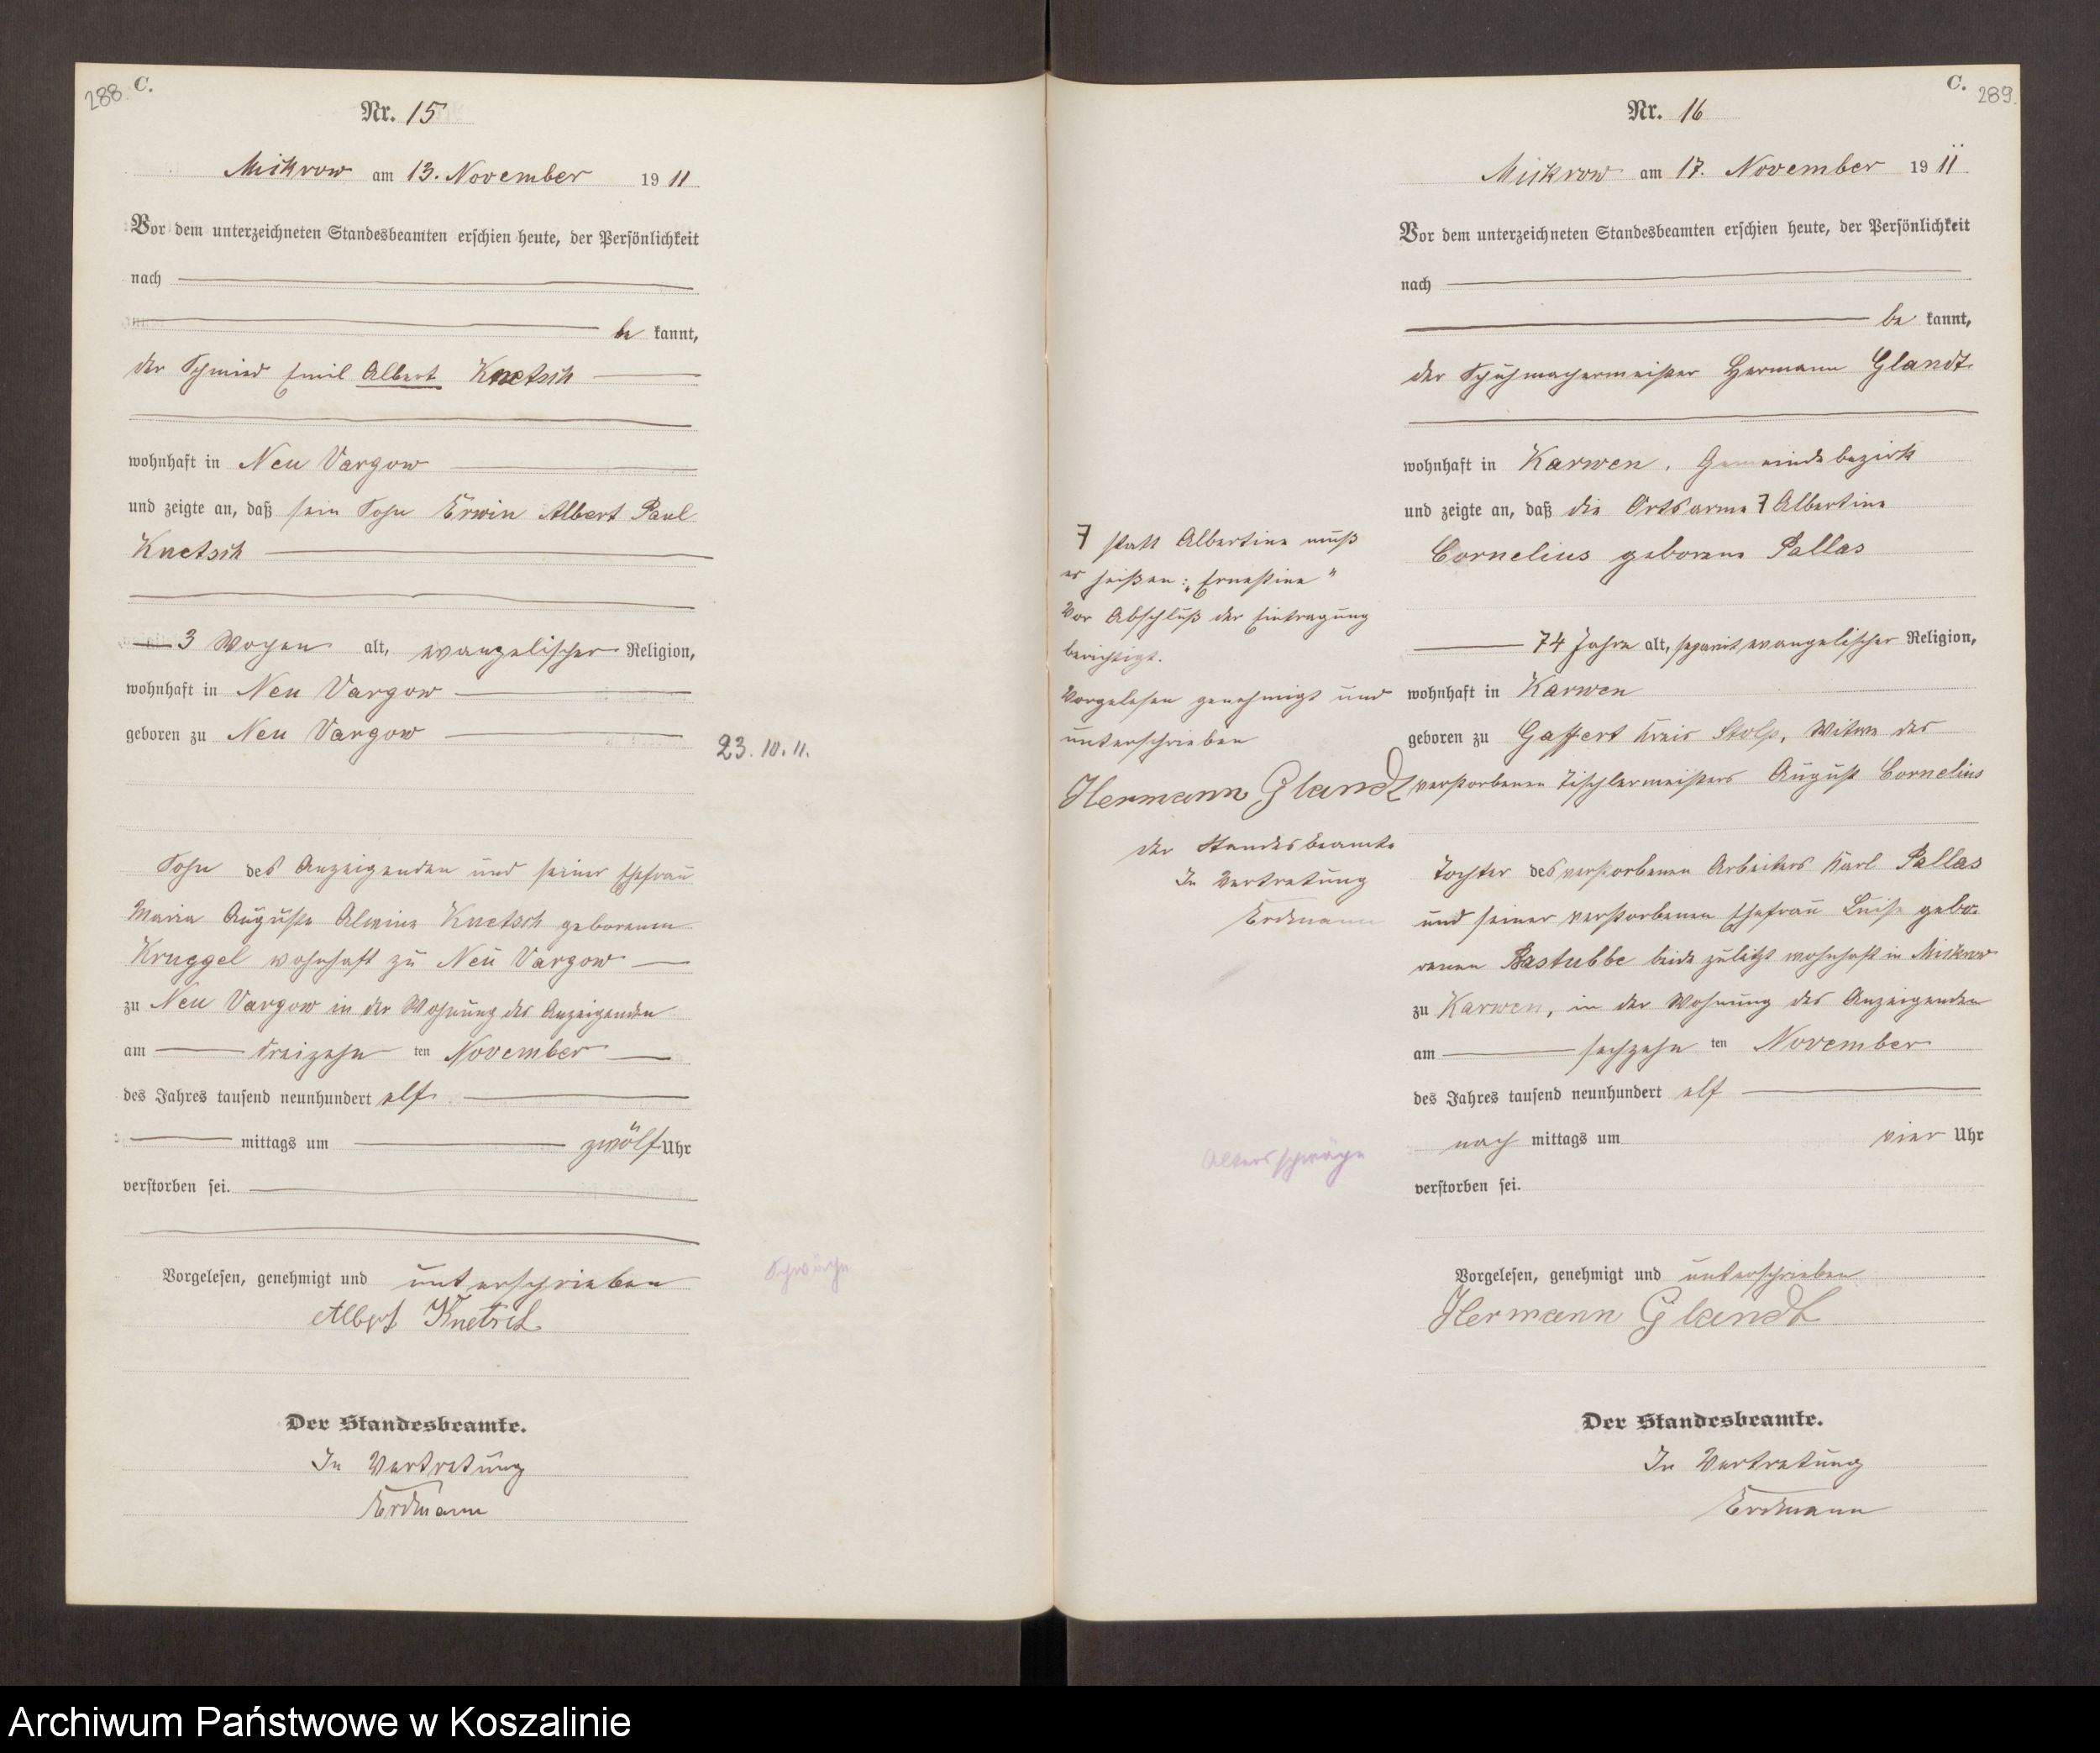 288 C.
Nr. 15
Mikrow am 13. November 1911
Vor dem unterzeichneten Standesbeamten erschien heute, der Persönlichkeit
nach
be kannt,
der Schmied Emil Albert Knetsch
wohnhaft in Neu Vargow
und zeigte an, daß sein Sohn Erwin Albert Paul
Knetsch
3 Wochen alt, evangelischer Religion,
wohnhaft in Neu Vargow
geboren zu Neu Vargow
23.10.11.
Sohn des Anzeigenden und seiner Ehefrau
Maria Auguste Alwine Knetsch geborenen
Kruggel wohnhaft zu Neu Vargow
zu Neu Vargow in der Wohnung des Anzeigenden
am dreizehn ten November
des Jahres tausend neunhundert elf
mittags um zwölf Uhr
verstorben sei.
Schwäche
Vorgelesen, genehmigt und unterschrieben
Albert Knetsch
Der Standesbeamte.
In Vertretung
Erdmann
C. 289.
Nr. 16
Mikrow am 17. November 1911.
Vor dem unterzeichneten Standesbeamten erschien heute, der Persönlichkeit
nach
be kannt,
der Schuhmachermeister Hermann Glandt
wohnhaft in Karwen, Gemeindebezirk
und zeigte an, daß die Ortsarme Albertine
Cornelius geborene Pallas
74 Jahre alt, separirt evangelischer Religion,
wohnhaft in Karwen
geboren zu Gaffert Kreis Stolp, Witwe des
verstorbenen Tischlermeisters August Cornelius
Tochter des verstorbenen Arbeiters Karl Pallas
und seiner verstorbenen Ehefrau Luise gebo-
renen Bastubbe beide zuletzt wohnhaft in Mikrow
zu Karwen, in der Wohnung des Anzeigenden
am sechzehn ten November
des Jahres tausend neunhundert elf
nach mittags um vier Uhr
verstorben sei.
Vorgelesen, genehmigt und unterschrieben
Hermann Glandt
Der Standesbeamte.
In Vertretung
Erdmann
statt Albertine muß
es heißen: „Ernestine"
Vor Abschluß der Eintragung
berichtigt.
Vorgelesen genehmigt und
unterschrieben
Hermann Glandt
Der Standesbeamte
In Vertretung
Erdmann
Altersschwäche
Archiwum Państwowe w Koszalinie